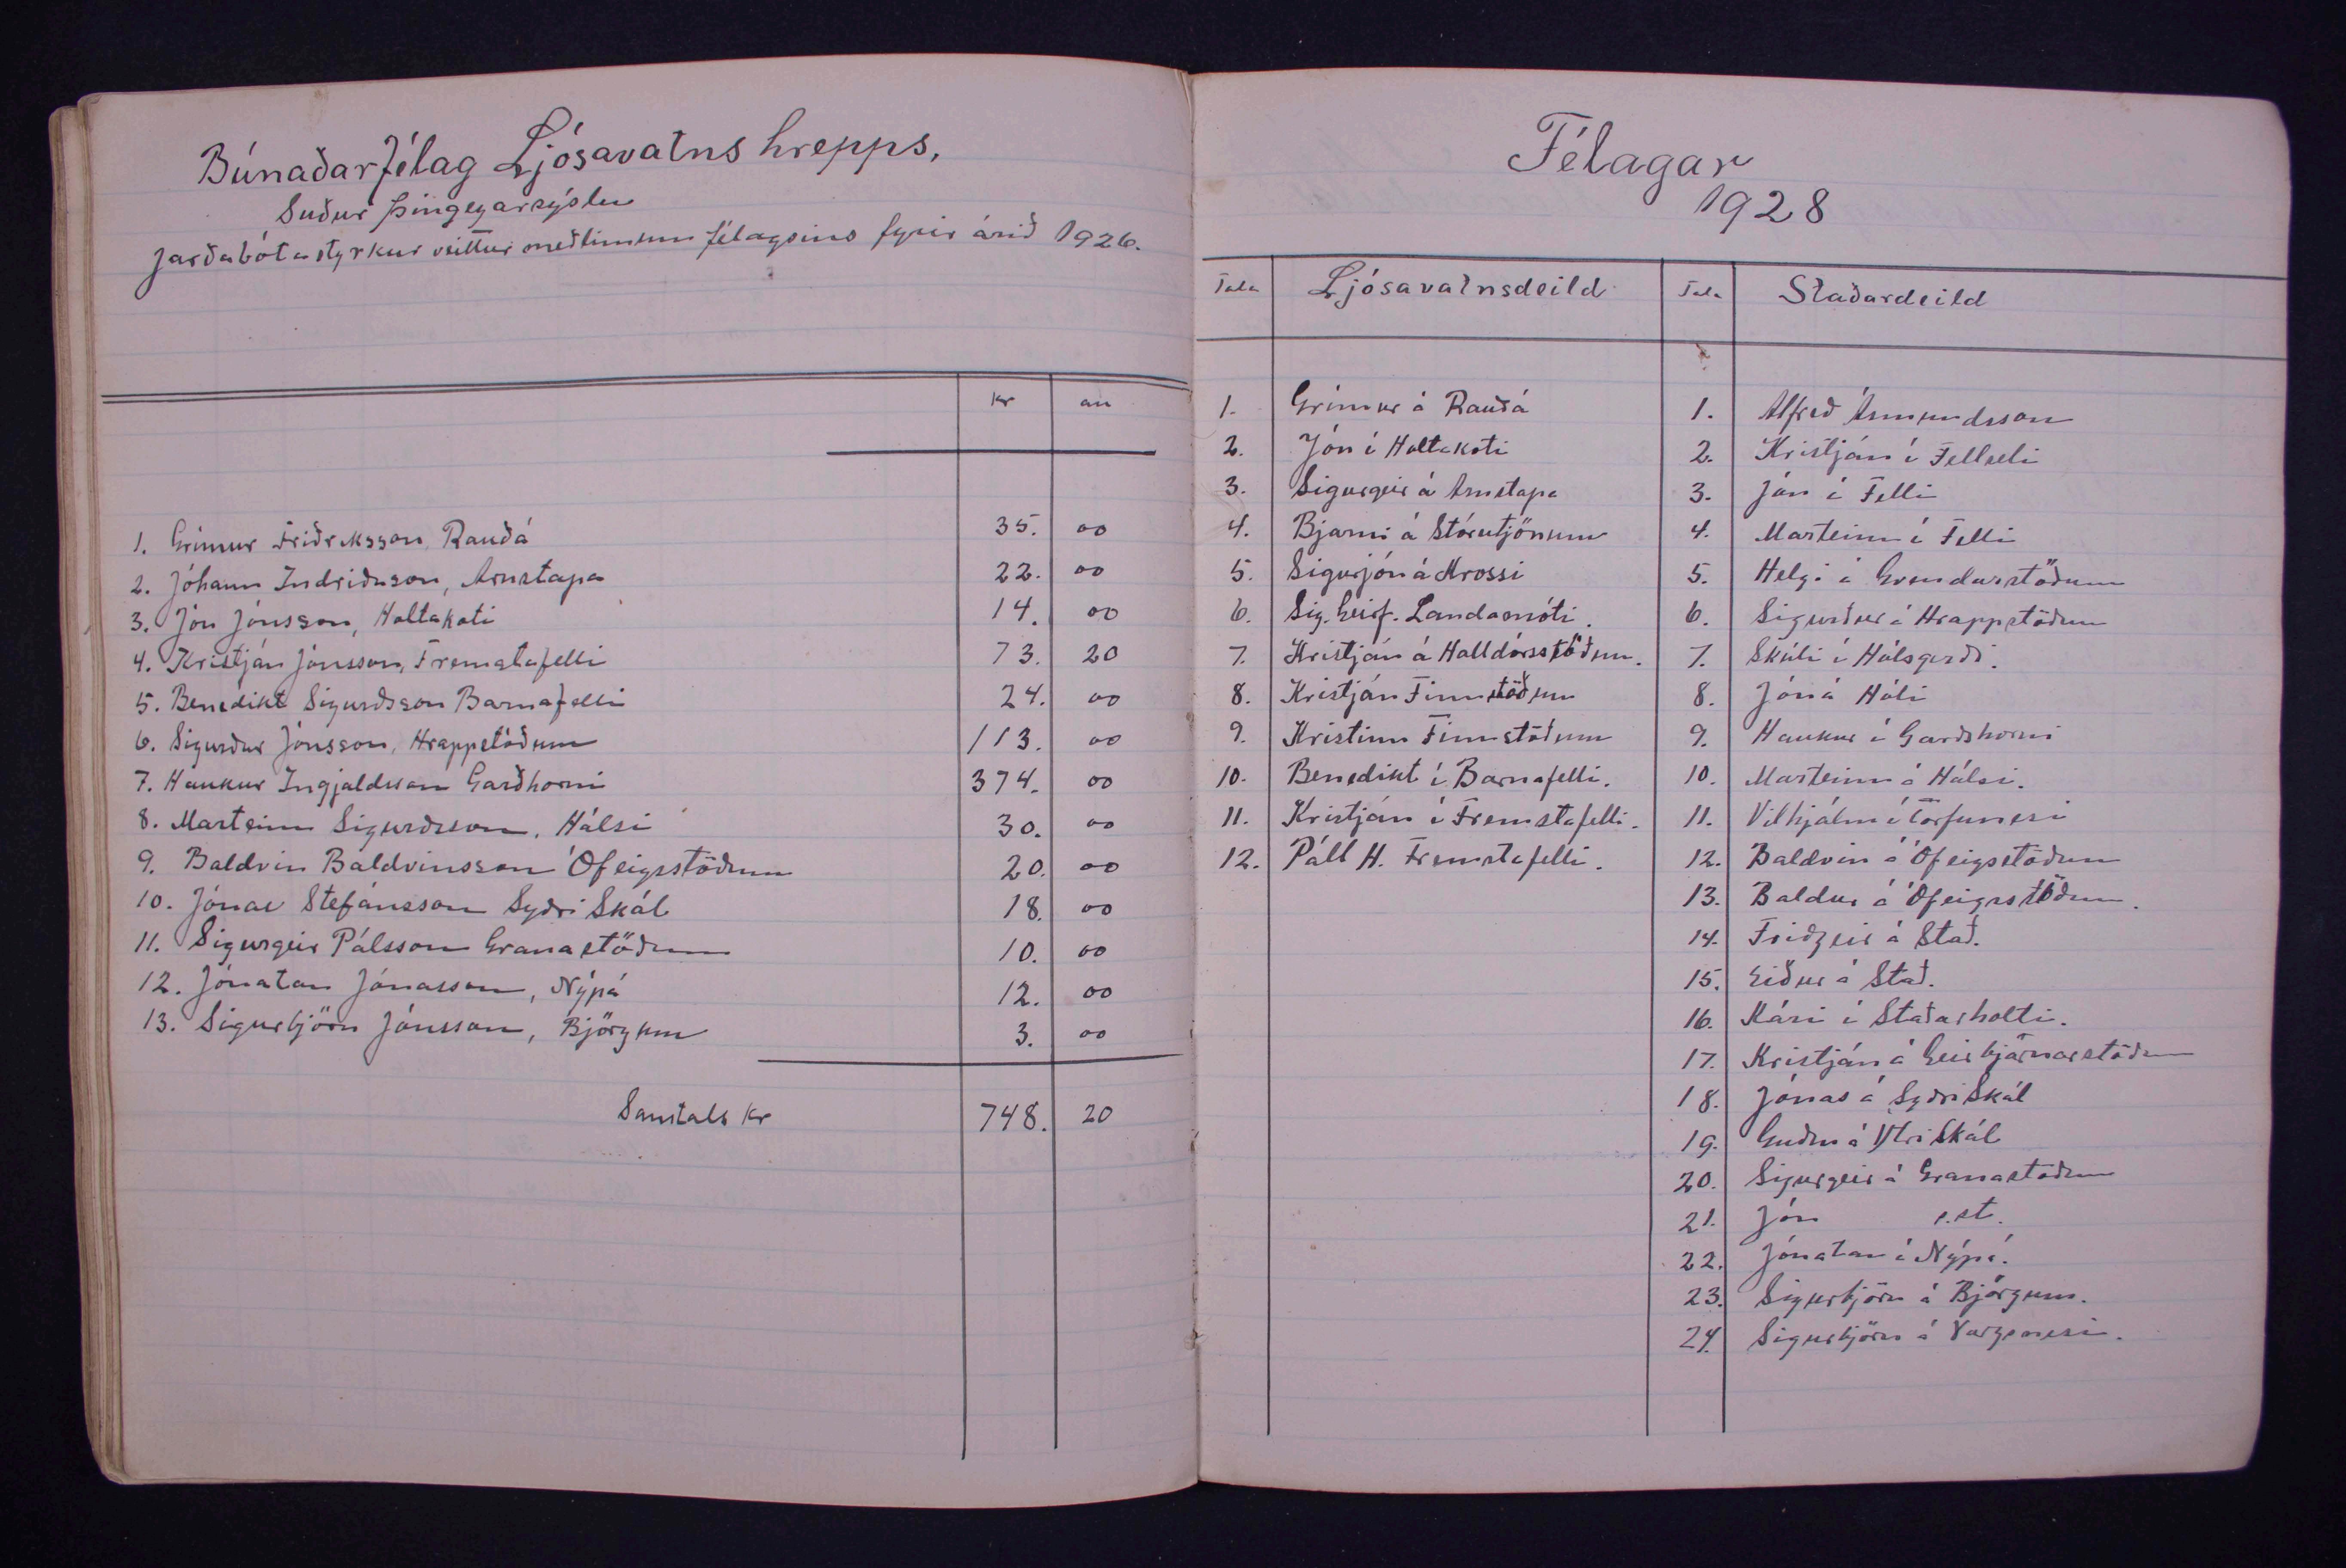 Búnaðarfélag Ljósavatnshrepps,
Suður Þingeyarsýslu
Jarðabótastyrkur veittur meðlimum félagsins fyrir árið 1926.
kr au
1. Grímur Friðriksson, Rauðá 35. 00
2. Jóhann Indriðason, Arnstapa 22. 00
3. Jón Jónsson, Holtakoti 14. 00
4. Kristján Jónsson, Fremstafelli 73. 20
5. Benedikt Sigurðsson Barnafelli 24. 00
6. Sigurður Jónsson, Hrappstöðum 113. 00
7. Haukur Ingjaldsson Garðhorni 374. 00
8. Marteinn Sigurðsson, Hálsi 30. 00
9. Baldvin Baldvinsson Ófeigsstöðum 20. 00
10. Jónas Stefánsson Syðri Skál 18. 00
11. Sigurgeir Pálsson Granastöðum 10. 00
12. Jónatan Jónasson, Nýpá 12. 00
13. Sigurbjörn Jónsson, Björgum 3. 00
Samtals kr 748. 20
Félagar
1928
Tala Ljósavatnsdeild
1. Grímur á Rauðá
2. Jón í Holtakoti
3. Sigurgeir á Arnstapa
4. Bjarni á Stórutjörnum
5. Sigurjón á Krossi
6. Sig. Geirf. Landamóti.
7. Kristján á Halldórsstöðum.
8. Kristján Finnstöðum
9. Kristinn Finnstöðum
10. Benedikt í Barnafelli.
11. Kristján í Fremstafelli.
12. Páll H. Fremstafelli.
Tala Staðardeild
1. Alfreð Ásmundsson
2. Kristján í Fellseli
3. Jón í Felli
4. Marteinn í Felli
5. Helgi á Gvendarstöðum
6. Sigurður á Hrappstöðum
7. Skúli í Hálsgerði.
8. Jón á Hóli
9. Haukur í Garðshorni
10. Marteinn á Hálsi.
11. Vilhjálm í Torfunesi
12. Baldvin á Ófeigstöðum
13. Baldur á Ófeigsstöðum.
14. Friðgeir á Stað.
15. Eiður á Stað.
16. Kári í Staðarholti.
17. Kristján á Geirbjarnarstöðum
18. Jónas á Syðri Skál
19. Guðm á Ytri Skál
20. Sigurgeir á Granastöðum
21. Jón s.st.
22. Jónatan á Nýpá.
23. Sigurbjörn á Björgum.
24. Sigurbjörn á Vargsnesi.